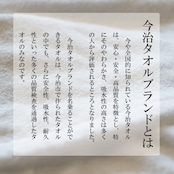 今治タオルブランドとは
今や全国的に知られている今治タオル
は、安心・安全・高品質を特徴とし、特
にそのやわらかさ、吸水性の高さは多く
の人から評価されるところとなりました。
今治タオルブランドを名乗ることがで
きるタオルは、今治市で作られたタオル
の中でも、さらに安全性、吸水性、耐久
性といった多くの品質検査を通過したタ
オルのみなのです。